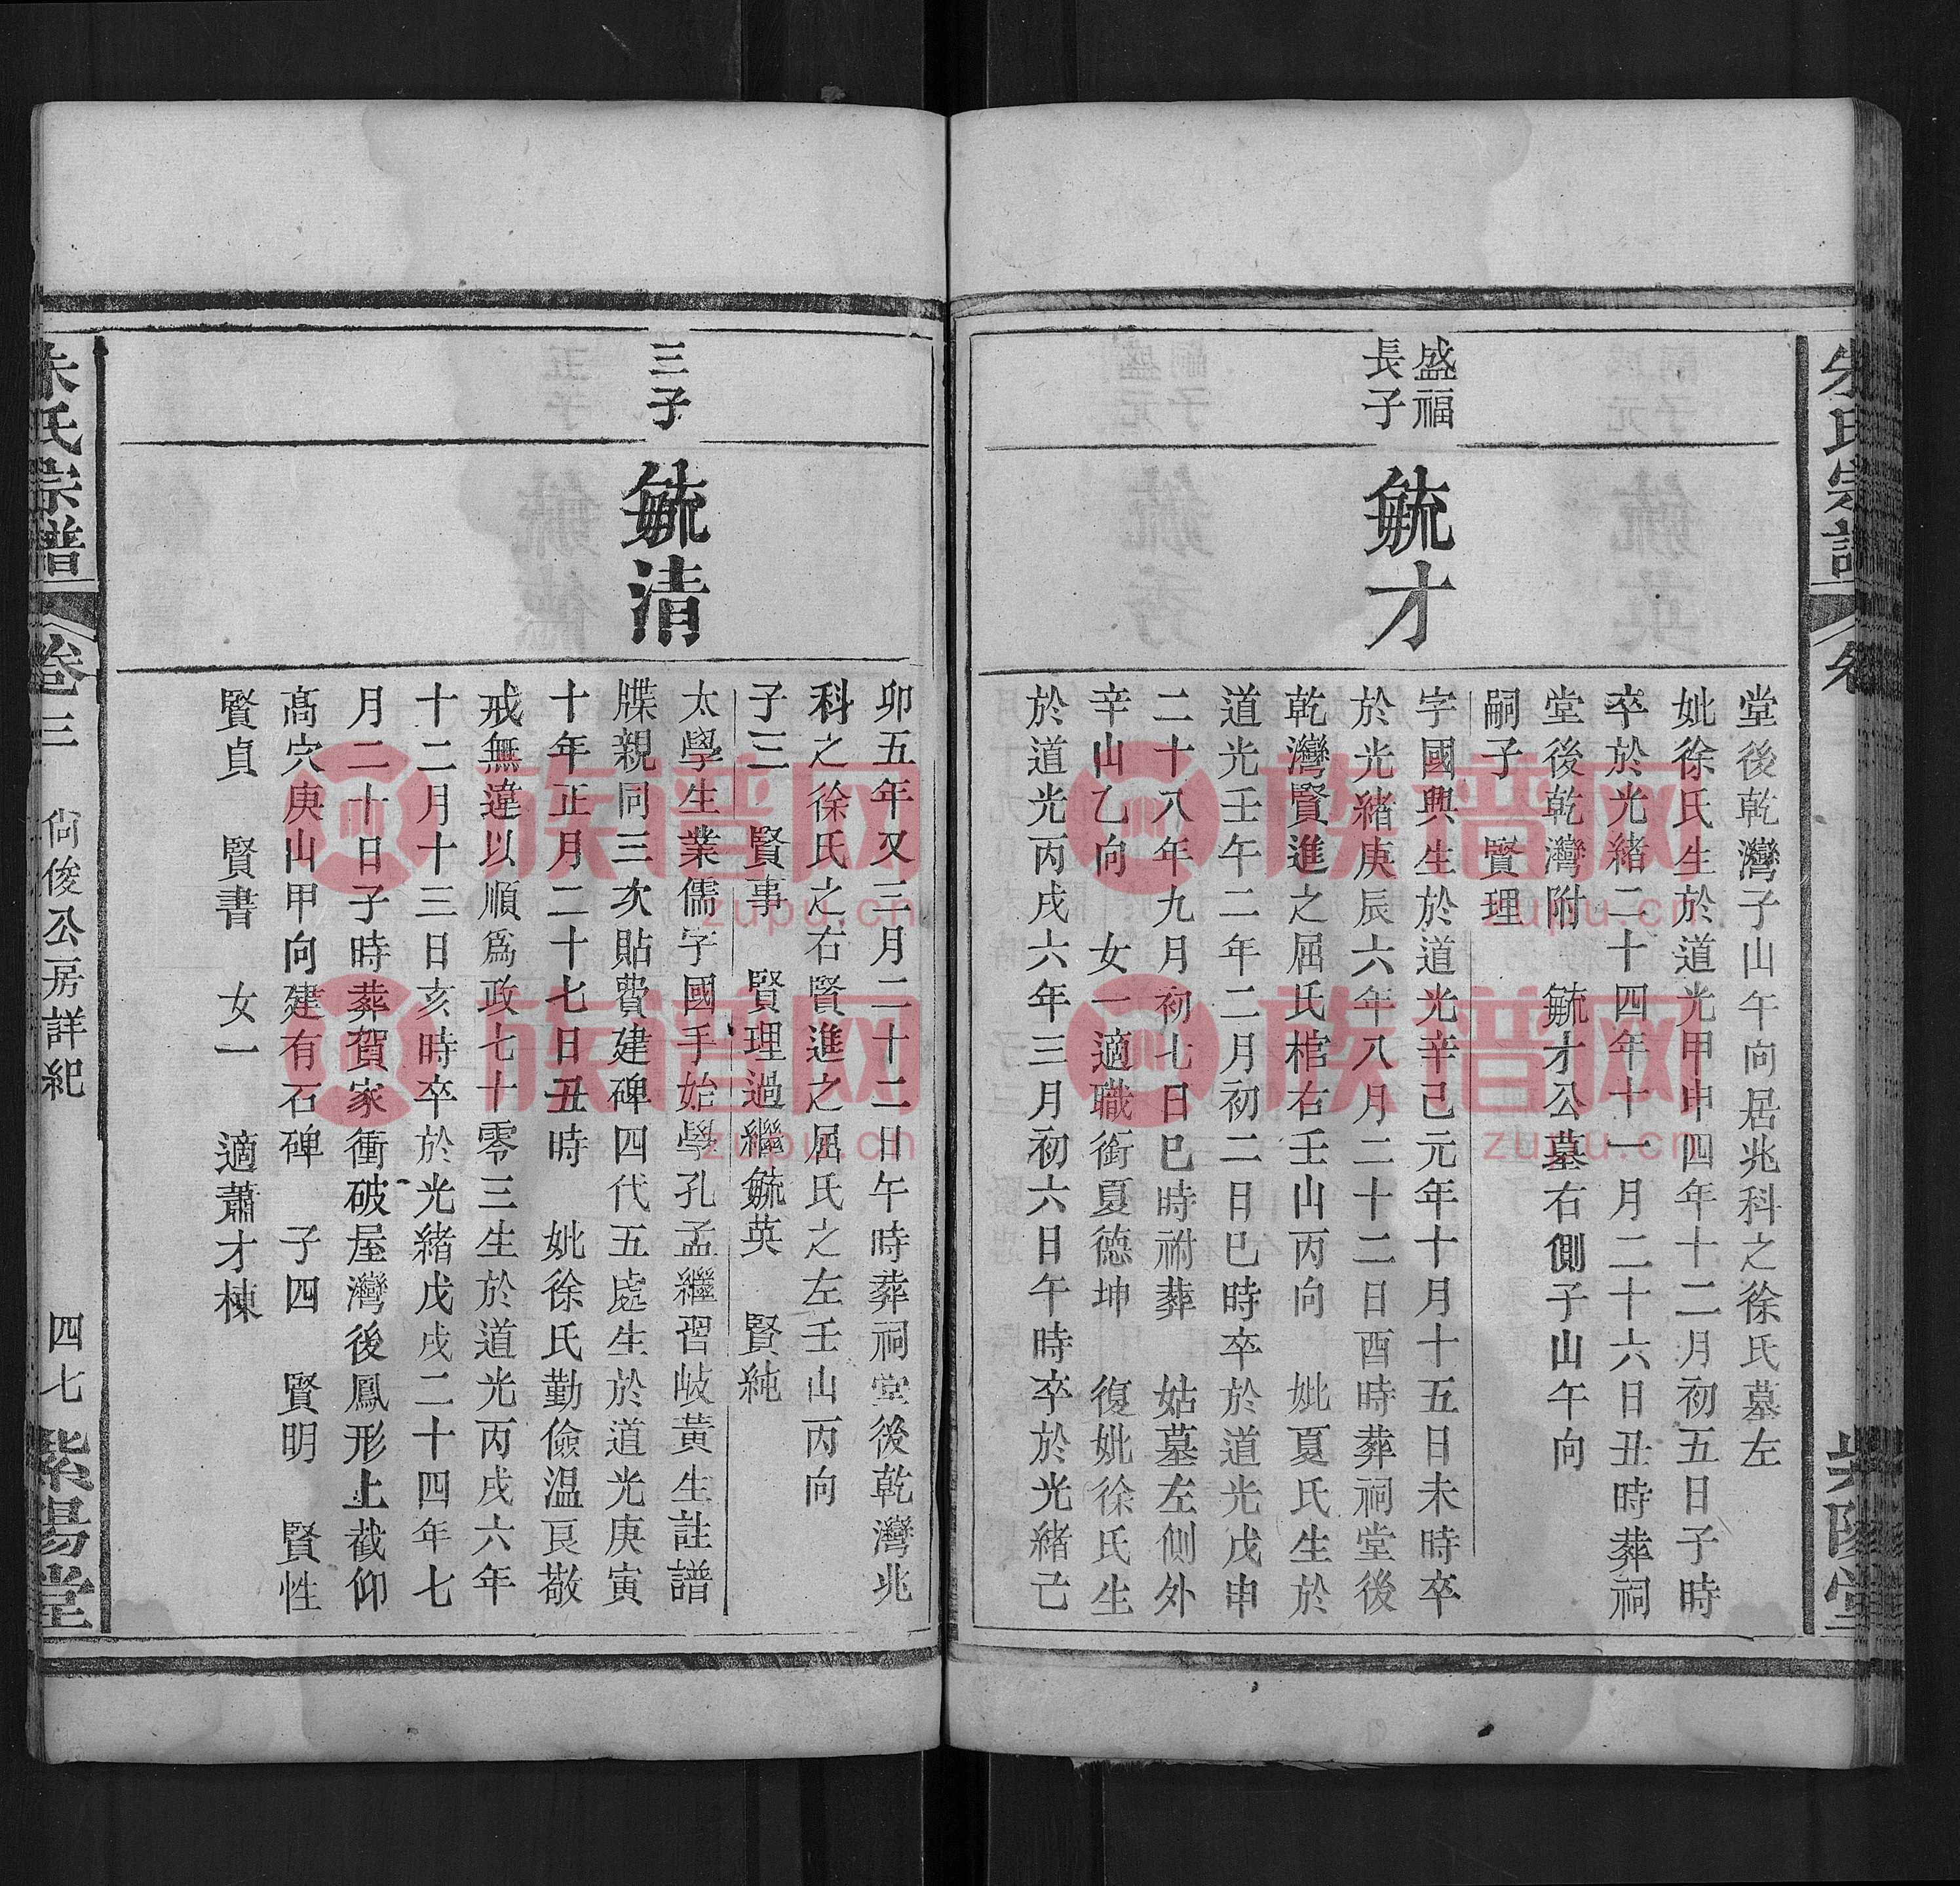 朱氏宗譜
紫陽堂
堂後乾灣子山午向居兆科之徐氏墓左
妣徐氏生於道光甲申四年十二月初五日子時
卒於光緒二十四年十一月二十六日丑時葬祠
堂後乾灣附　毓才公墓右側子山午向
嗣子　賢理
盛福
長子
毓才
字國興生於道光辛己元年十月十五日未時卒
於光緒庚辰六年八月二十二日酉時葬祠堂後
乾灣賢進之屈氏棺右壬山丙向　妣夏氏生於
道光壬午二年二月初二日巳時卒於道光戊申
二十八年九月初七日巳時祔葬　姑墓左側外
辛山乙向　女一適職銜夏德坤　復妣徐氏生
於道光丙戌六年三月初六日午時卒於光緒己
卯五年又三月二十二日午時葬祠堂後乾灣兆
科之徐氏之右賢進之屈氏之左壬山丙向
子三　賢事　賢理過繼毓英　賢純
三子
毓清
太學生業儒字國手始學孔孟繼習岐黃生註譜
牒親同三次貼費建碑四代五處生於道光庚寅
十年正月二十七日丑時　妣徐氏勤儉温良敬
戒無違以順為政七十零三生於道光丙戌六年
十二月十三日亥時卒於光緒戊戌二十四年七
月二十日子時葬賀家衝破屋灣後鳳形上截仰
高穴庚山甲向建有石碑　子四　賢明　賢性
賢貞　賢書　女一　適蕭才棟
朱氏宗譜
卷三　尚俊公房詳紀　四七
紫陽堂
族谱网
zupu.cn
族谱网
zupu.cn
族谱网
zupu.cn
族谱网
zupu.cn